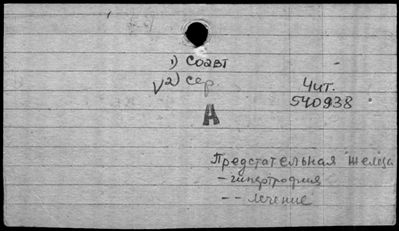 1) Соавт
√2) сер.
Чит.
540938
А
Предстательная железа
- гипертрофия
- - лечение